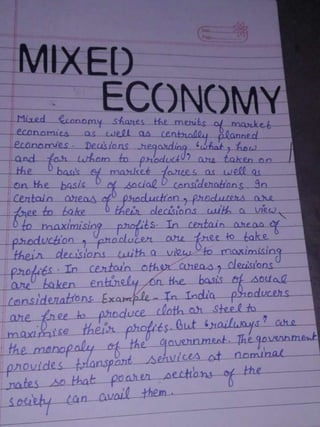 MIXED
ECONOMY
Mixed Economy shares the merits of market
economies as well as centrally planned
economies. Decisions regarding 'what, how
and for whom to product' are taken on
the basis of market forces as well as
on the basis of social considerations. In
certain areas of production, producers are
free to take their decisions with a view
to maximising profits. In certain areas of
production, producer are free to take
their decisions with a view to maximising
profits. In certain other areas, decisions
are taken entirely on the basis of social
considerations. Example - In India producers
are free to produce cloth or steel to
maximise their profits. But 'railways' are
the monopoly of the government. The government
provides transport services at nominal
rates so that poorer sections of the
society can avail them.